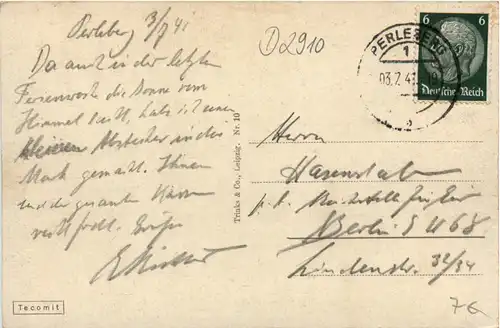 Perleberg 3/7 41
D2910
Da auch in der letzten
Ferienwoche die Sonne vom
Himmel lacht, habe ich einen
kleinen Abstecher in die
Mark gemacht. Ihnen
und der gesamten
recht frohe Grüße
PERLEBERG
1
6 6
Deutsches Reich
Trinks & Co., Leipzig. Nr. 10
Herrn
Hasenstab
Berlin S W 68
Lindenstr. 32/34
Tecomit
7G